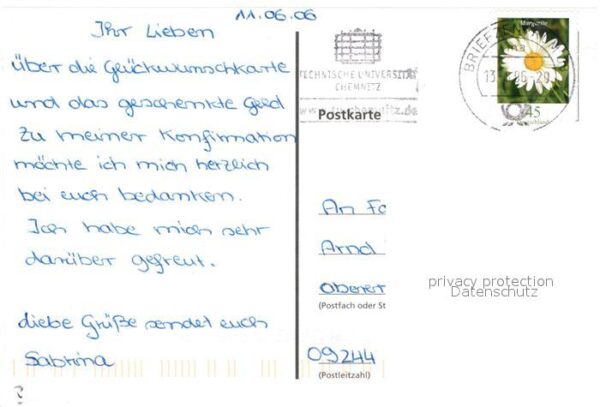 11.06.06
Ihr Lieben
über die Glückwunschkarte
und das geschenkte Geld
zu meiner Konfirmation
möchte ich mich herzlich
bei euch bedanken.
Ich habe mich sehr
darüber gefreut.
liebe Grüße sendet euch
Sabrina
TECHNISCHE UNIVERSITÄT
CHEMNITZ
Postkarte
Margerite
BRIEFZEN
45
An Fa
Arnd
Oberer
(Postfach oder St
09244
(Postleitzahl)
privacy protection
Datenschutz